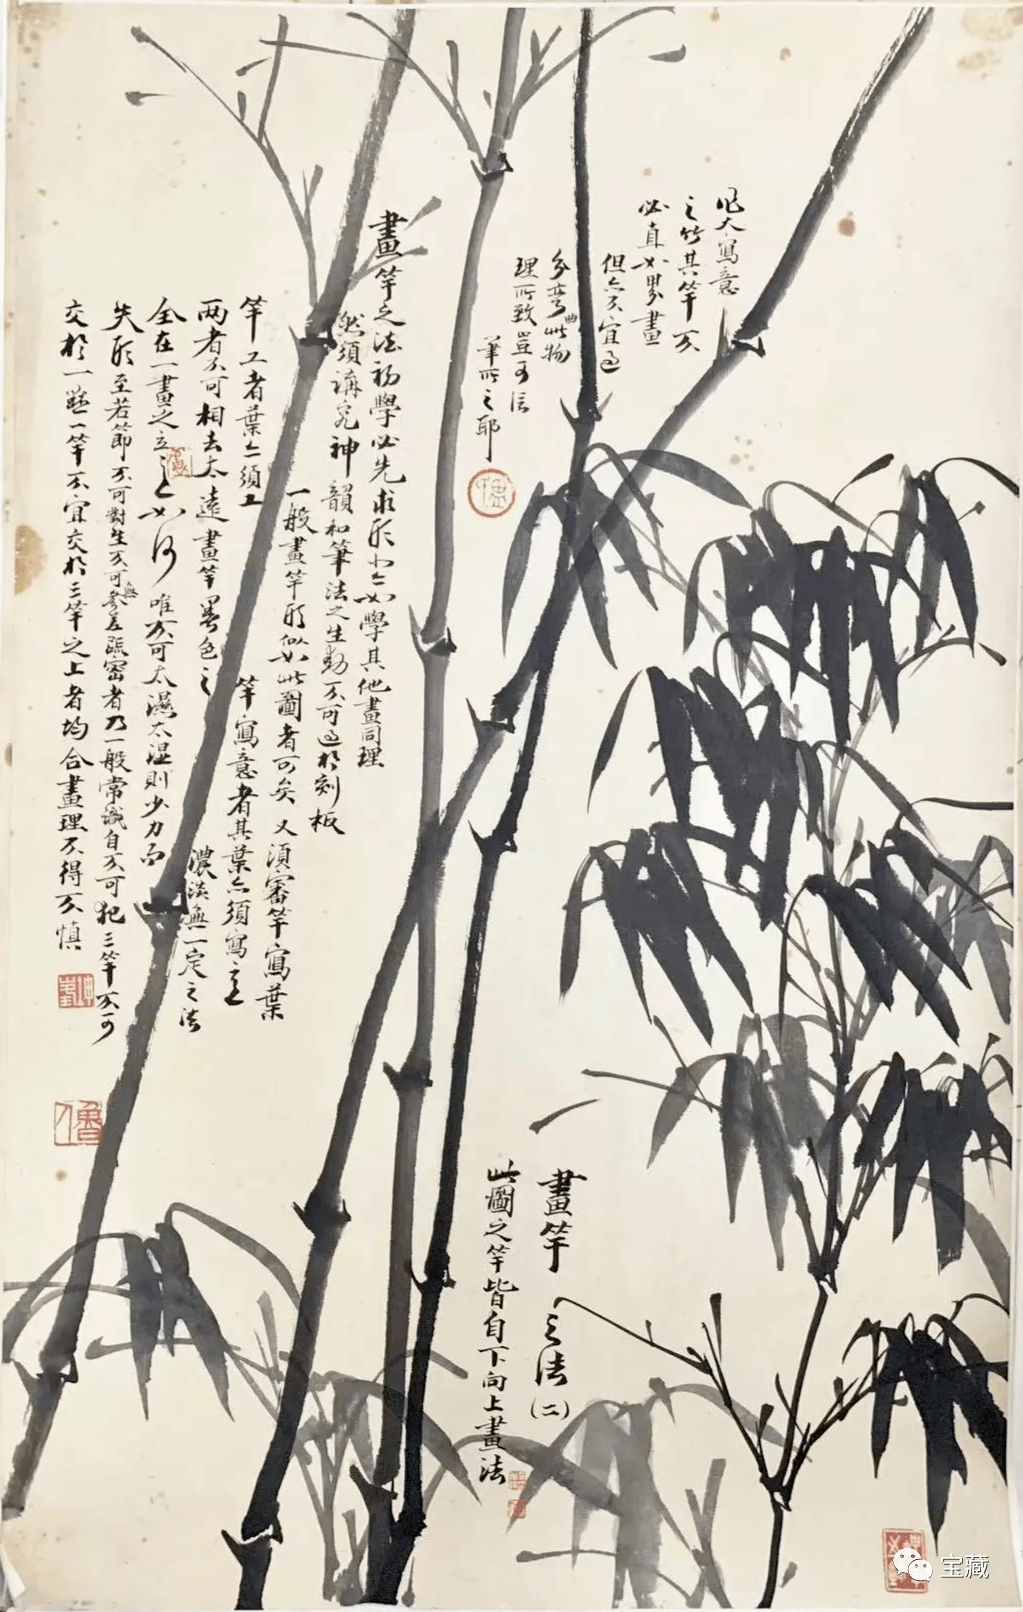 凡大寫意
之竹其竿不
必直如界畫
但亦不宜過
分彎曲此物
理所致豈可信
筆所之耶
畫竿之法初學必先求形亦如學其他畫同理
然須講究神韻和筆法之生動不可過於刻板
一般畫竿形似如此圖者可矣又須審竿寫葉
竿工者葉亦須工竿寫意者其葉亦須寫意
两者不可相去太遠畫竿墨色之濃淡無一定之法
全在一畫之立意如何唯不可太濕太濕則少力而
失形至若節不可對生不可無參差疏密者乃一般常識自不可犯三竿不可
交於一點一竿不宜交於三竿之上者均合畫理不得不慎
畫竿之法(二)
此圖之竿皆自下向上畫法
宝藏